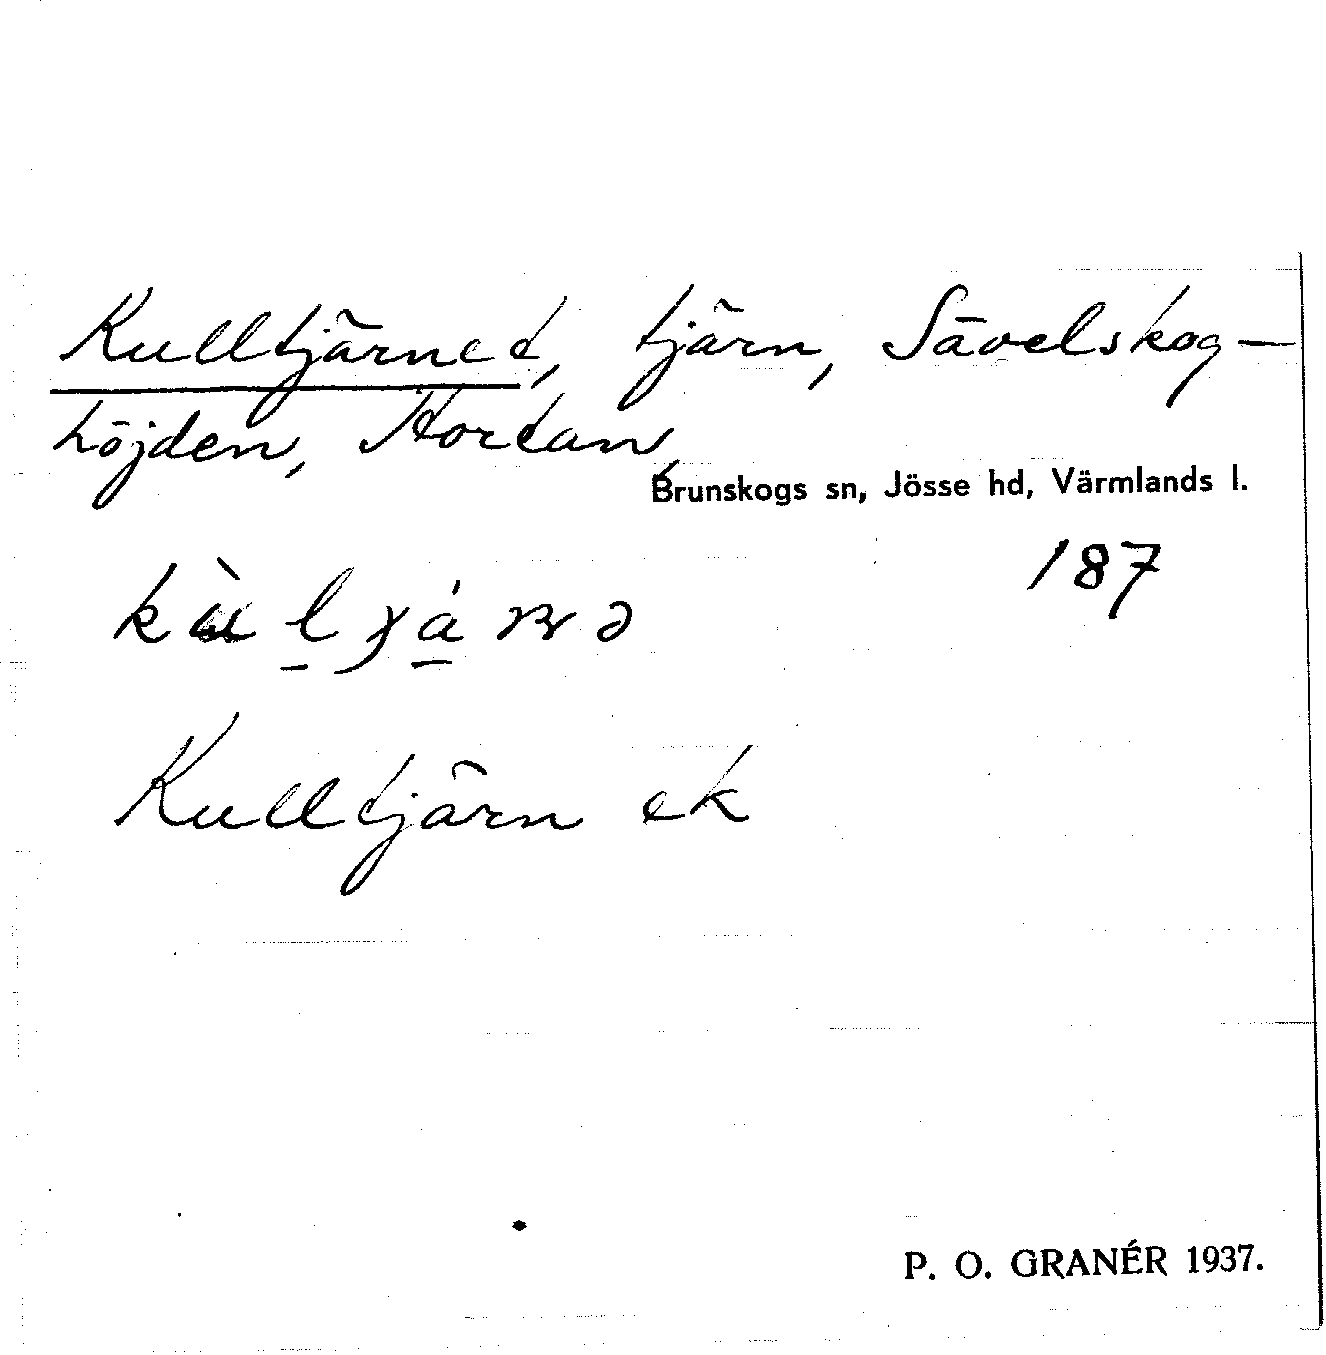 Kulltjärnet, tjärn, Sävelskog-
höjden, Hordan,
Brunskogs sn, Jösse hd, Värmlands l.
187
Kulltjärn ek
P. O. GRANÉR 1937.